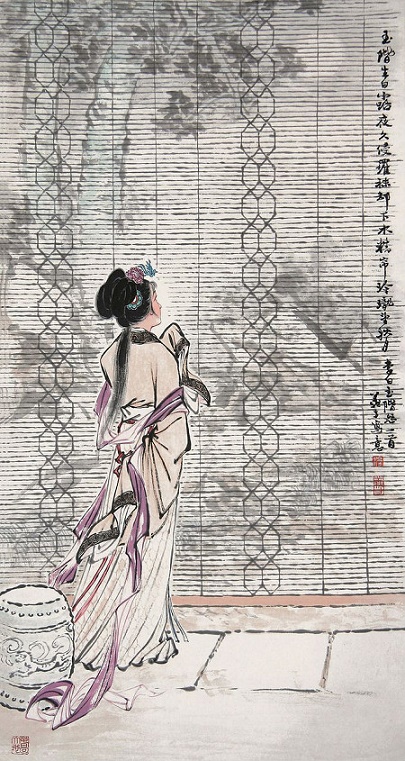 玉階生白露夜久侵羅襪却下水精帘玲瓏望秋月
李白玉階怨一首
寫意